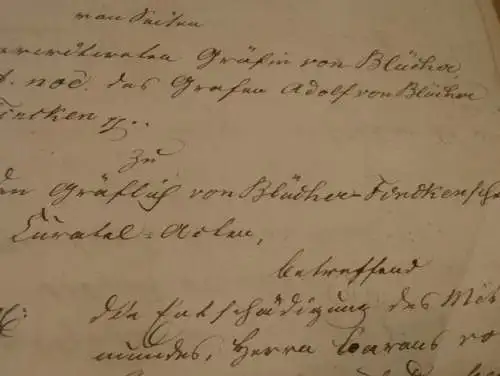 von Seiten
verwittweten Gräfin von Blücher,
t. noe. des Grafen Adolf von Blücher
Fincken pp..
zu
den Gräflich von Blücher-Finckensche
Curatel-Acten,
betreffend
die Entschädigung des Mit
mundes, Herrn Barons vo